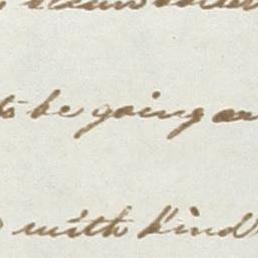 to be going on
with kind